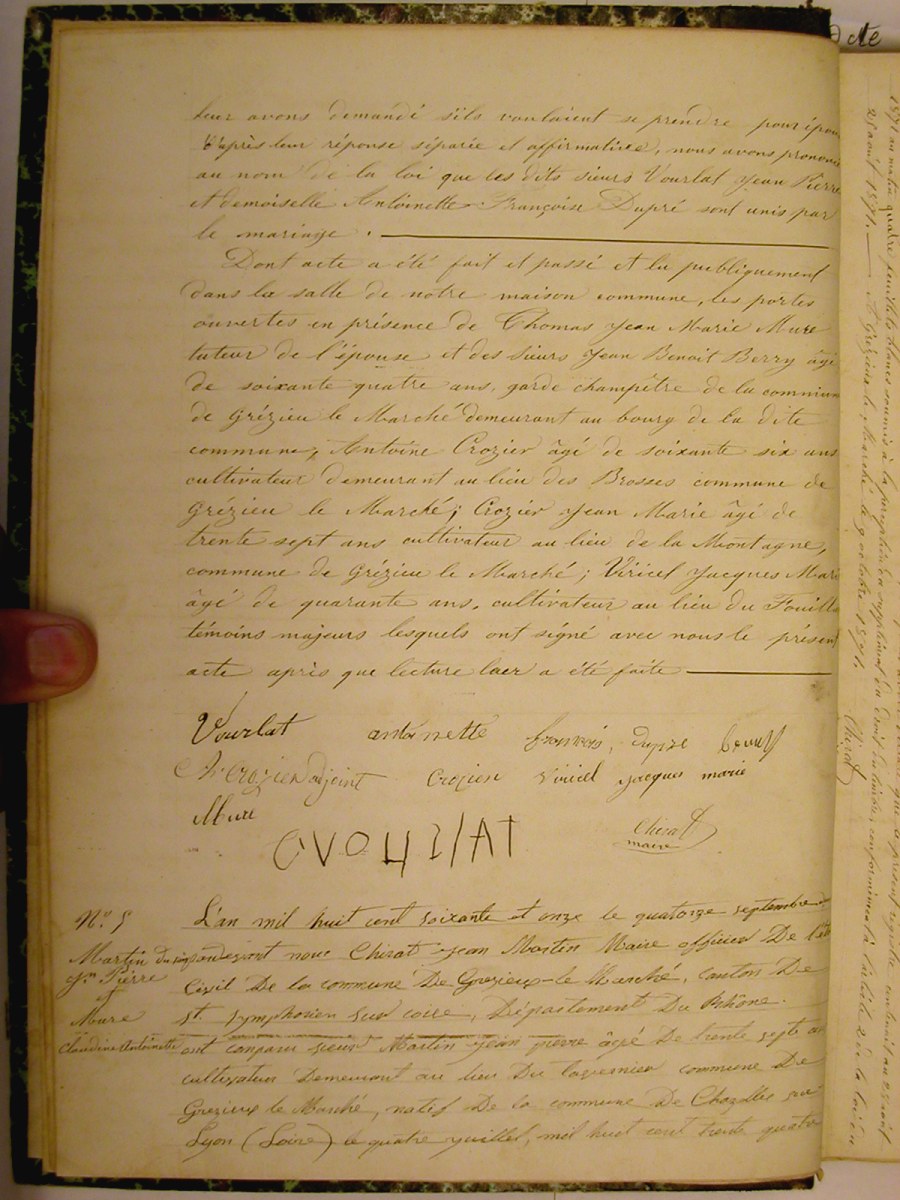 leur avons demandé s'ils voulaient se prendre pour épou
d'après leur réponse séparée et affirmative, nous avons prononc
au nom de la loi que les dits sieurs Vourlat Jean Pierre
et demoiselle Antoinette Françoise Dupré sont unis par
le mariage.
Dont acte a été fait et passé et lu publiquement
dans la salle de notre maison commune, les portes
ouvertes en présence de Thomas Jean Marie Mure
tuteur de l'épouse et des sieurs Jean Benoit Berry âgé
de soixante quatre ans, garde champêtre de la commun
de Grézieu le Marché demeurant au bourg de la dite
commune, Antoine Crozier âgé de soixante six ans
cultivateur demeurant au lieu des Brosses commune de
Grézieu le Marché; Crozier Jean Marie âgé de
trente sept ans cultivateur au lieu de la Montagne,
commune de Grézieu le Marché; Viricel Jacques Mari
âgé de quarante ans, cultivateur au lieu du Fouill
témoins majeurs lesquels ont signé avec nous le présent
acte après que lecture leur a été faite
Vourlat antoinette françois, dupre berry
crozier adjoint crozier viricel jacques marie
Mure
Chirat
maire
N° 5
Martin
jn Pierre
et
Mure
Claudine Antoinette
L'an mil huit cent soixante et onze le quatorze septembre
pardevant nous Chirat jean Martin Maire officier De l'ét
Civil De la commune De Grezieux-le Marché, canton De
st symphorien sur coise, Département Du Rhône.
ont comparu sieur Martin jean pierre âgé De trente sept an
cultivateur Demeurant au lieu Du commune De
Grezieux le Marché, natif De la commune De Chazelles sur
Lyon (Loire) le quatre juillet, mil huit cent trente quatre
A Grézieu le Marché le 9 octobre 1871.
Chirat